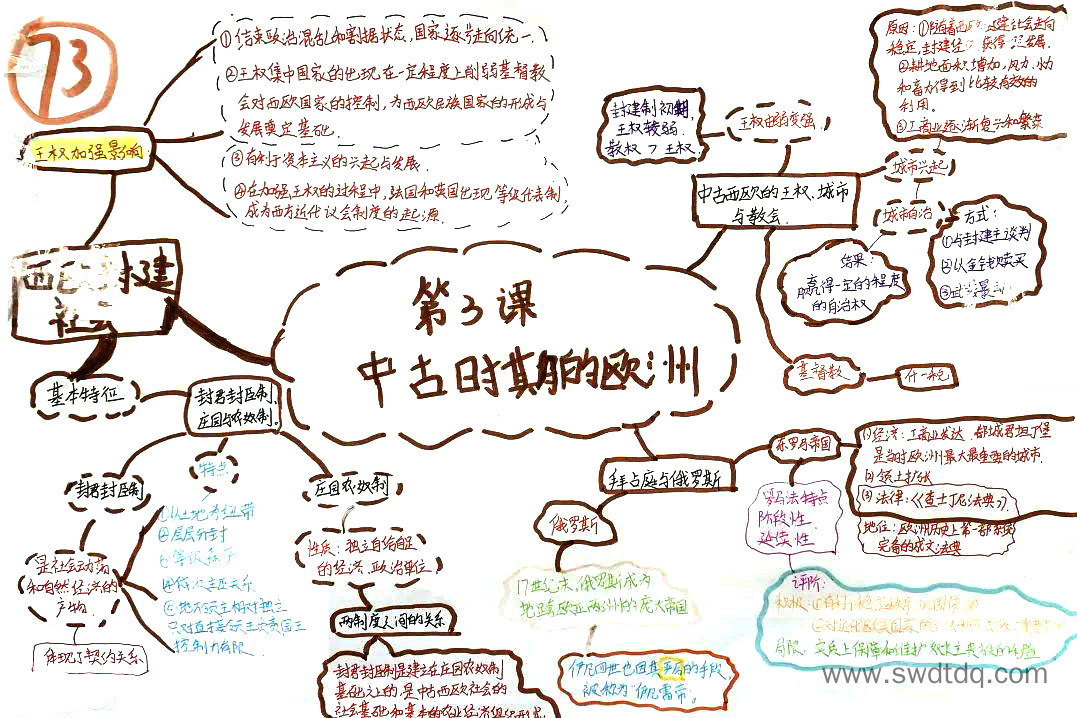 73
王权加强影响
①结束政治混乱和割据状态,国家逐步走向统一.
②王权集中国家的出现,在一定程度上削弱基督教
会对西欧国家的控制,为西欧民族国家的形成与
发展奠定基础.
③有利于资本主义的兴起与发展.
④在加强王权的过程中,法国和英国出现等级代表制,
成为西方近代议会制度的起源.
西欧封建
社会
基本特征
封君封臣制、
庄园与农奴制.
封君封臣制
特点
庄园农奴制
是社会动荡
和自然经济的
产物
体现了契约关系
①以土地为纽带
②层层分封
③等级森严
⑤地方领主相对独立
性质:独立自给自足
的经济、政治单位
两制度之间的关系
封君封臣制是建立在庄园农奴制
基础之上的,是中古西欧社会的
社会基础和基本的农业经济组织形式
第3课
中古时期的欧洲
中古西欧的王权、城市
与教会.
封建制初期
王权较弱
教权>王权.
王权由弱变强
原因:①随着西欧封建社会走向
稳定,封建经济获得发展.
②耕地面积增加,风力、水力
和畜力得到比较有效的
利用。
③工商业逐渐复兴和繁荣
城市兴起
城市自治
方式:
①与封建主谈判
②以金钱赎买
③武装暴动
结果:
赢得一定的程度
的自治权
基督教
什一税
拜占庭与俄罗斯
东罗马帝国
经济:工商业发达.都城君士坦丁堡
是当时欧洲最大最重要的城市.
领土扩张
法律:《查士丁尼法典》.
地位:欧洲历史上第一部系统
完备的成文法典
罗马法特点
阶段性
延续性
评价:
积极:
局限:
俄罗斯
17世纪末,俄罗斯成为
地跨欧亚两洲的庞大帝国
伊凡四世也因其严厉的手段,
被称为“伊凡雷帝”.
www.swdtdq.com